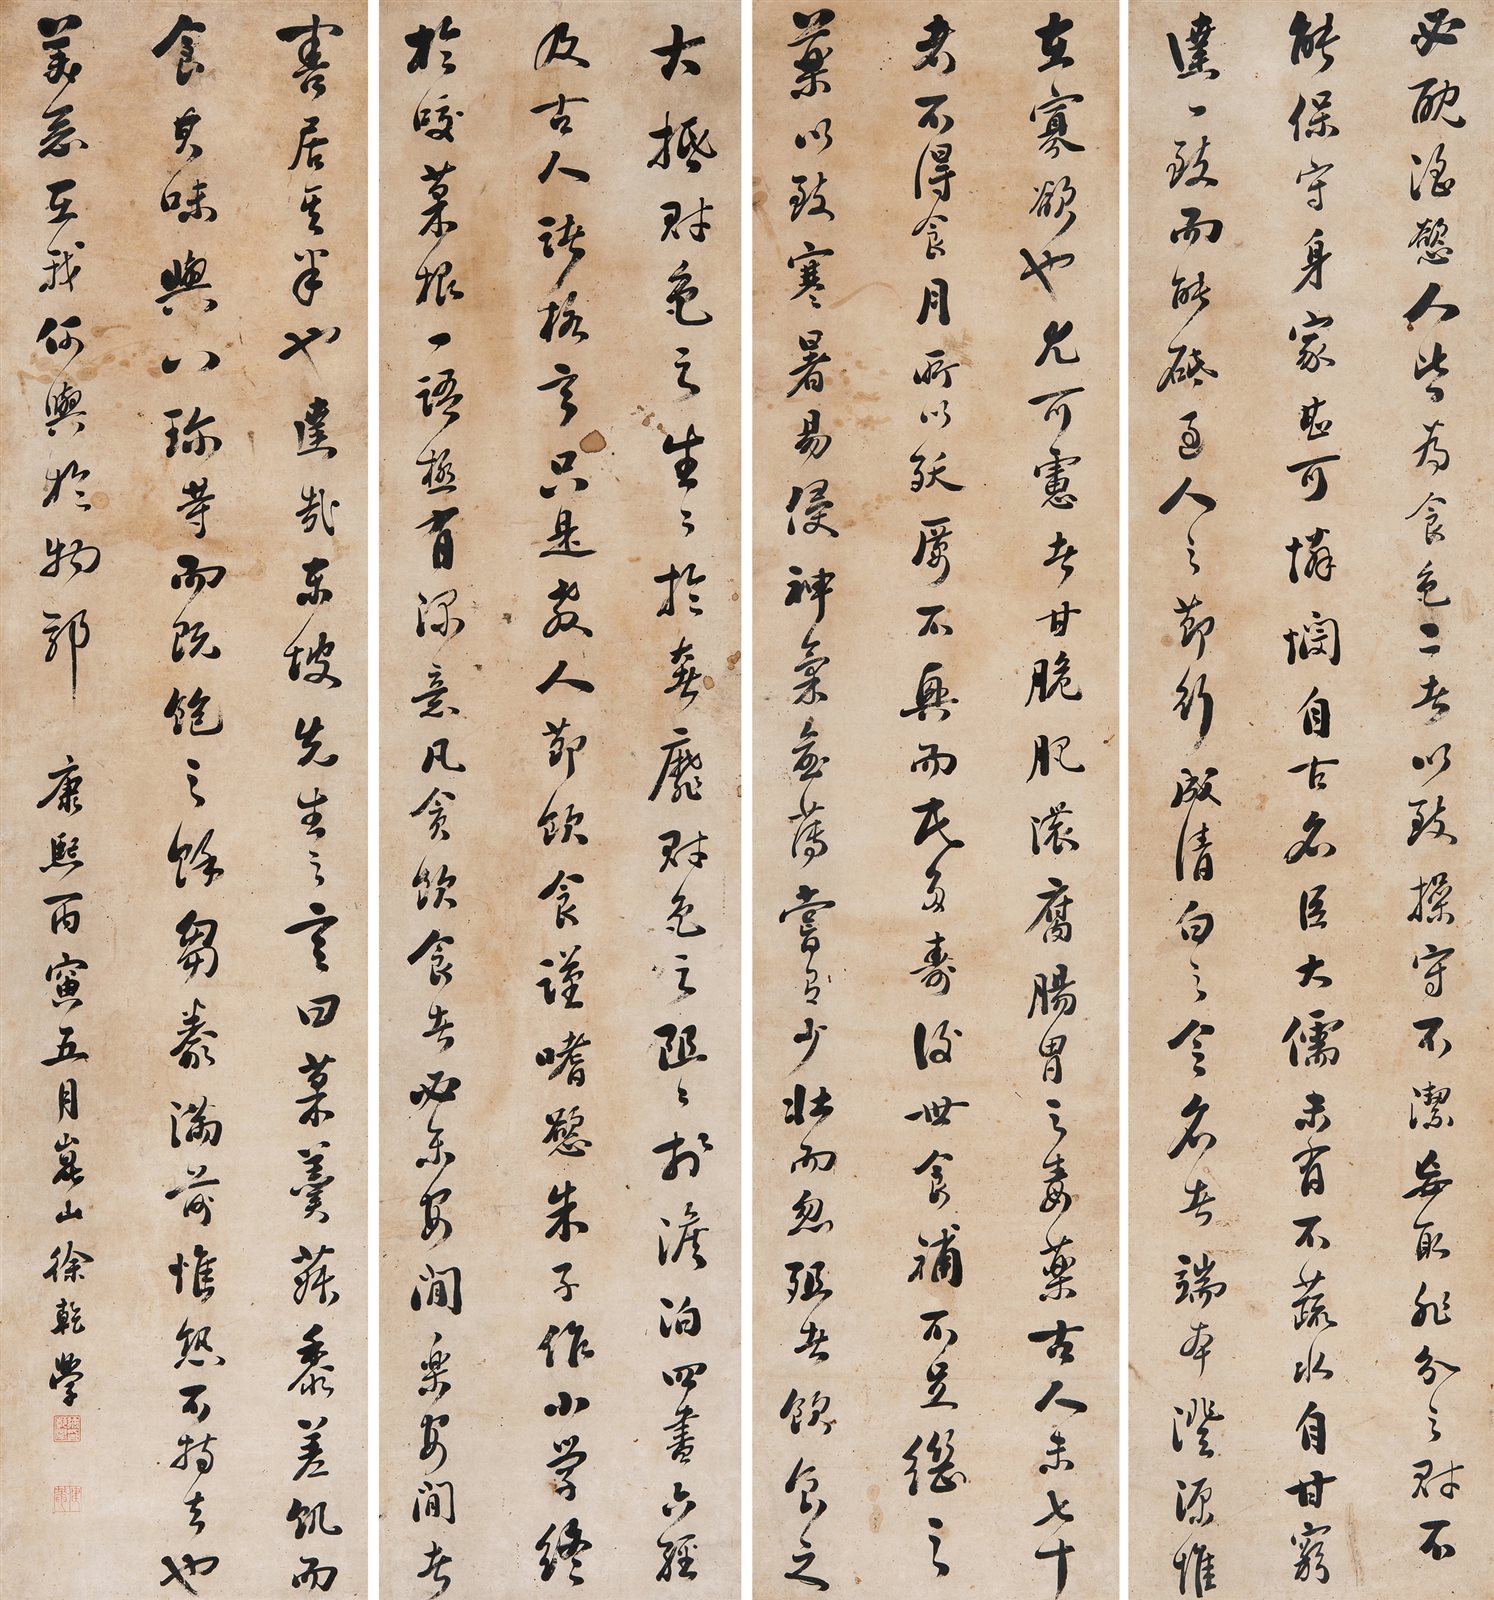 必酖淫慾人皆為食色二者以致操守不潔妄取非分之財不
能保守身家甚可憐憫自古名臣大儒未有不蔬水自甘窮
達一致而能砥至人之節行成清白之令名者端本澄源惟
在寡欲也尤可慮者甘脆肥濃腐腸胃之毒藥古人未七十
者不得食肉所以夭厲不興而民多壽後世食補不足繼之
藥以致寒暑易侵神氣無蓄嘗見少壯而忽殂者飲食之
害居其半也達哉東坡先生之言曰菜羹菽黍差飢而
食其味與八珍等而既飽之餘芻豢滿前惟恐不持去也
美惡在我何與於物耶 康熙丙寅五月崑山徐乾學
大抵財色之生生於奢靡財色之阻阻於澹泊四書六經
及古人語格言只是教人節飲食謹嗜慾朱子作小學終
於咬菜根一語極有深意凡貪飲食者必不安閒樂安閒者